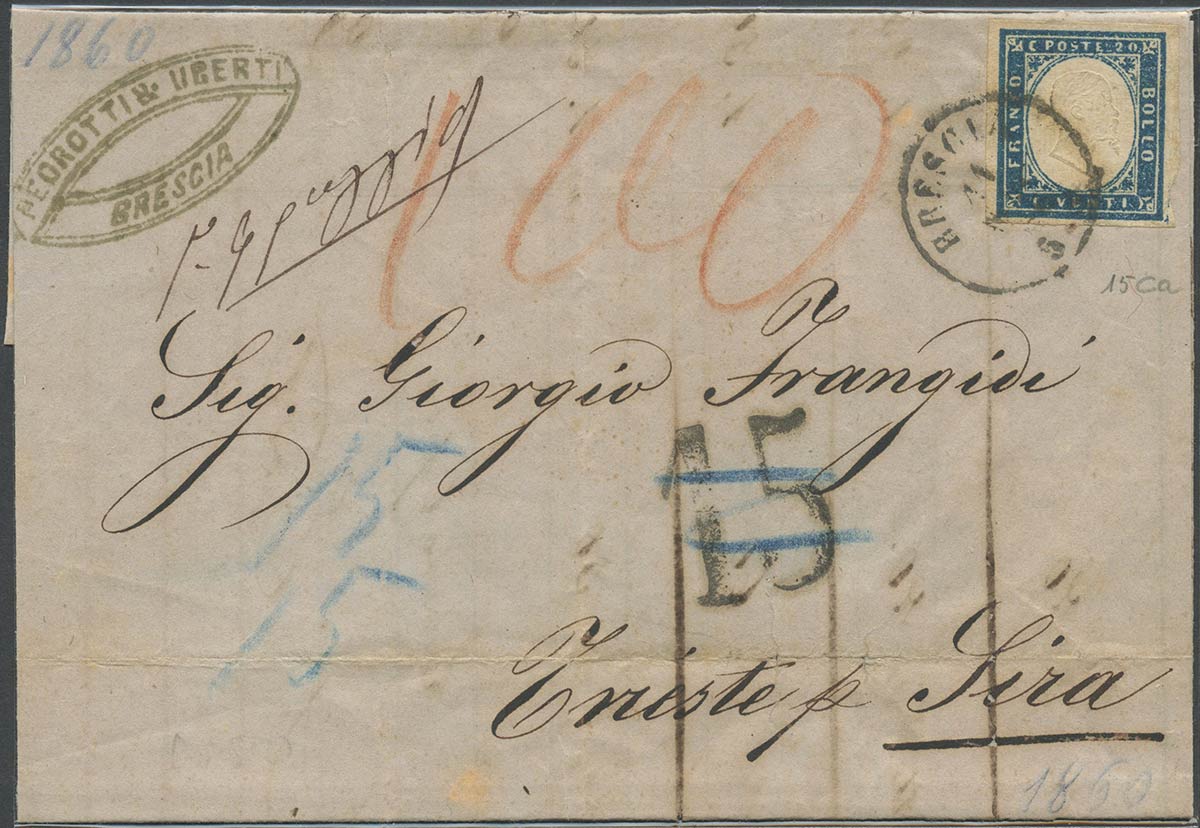 1860
PEDROTTI & UBERTI
BRESCIA
C. POSTE 20.
FRANCO
BOLLO
C. VENTI.
BRESCIA
11
100
15 Ca
Sig. Giorgio Frangidi
15
15
15
Trieste p Sira
1860